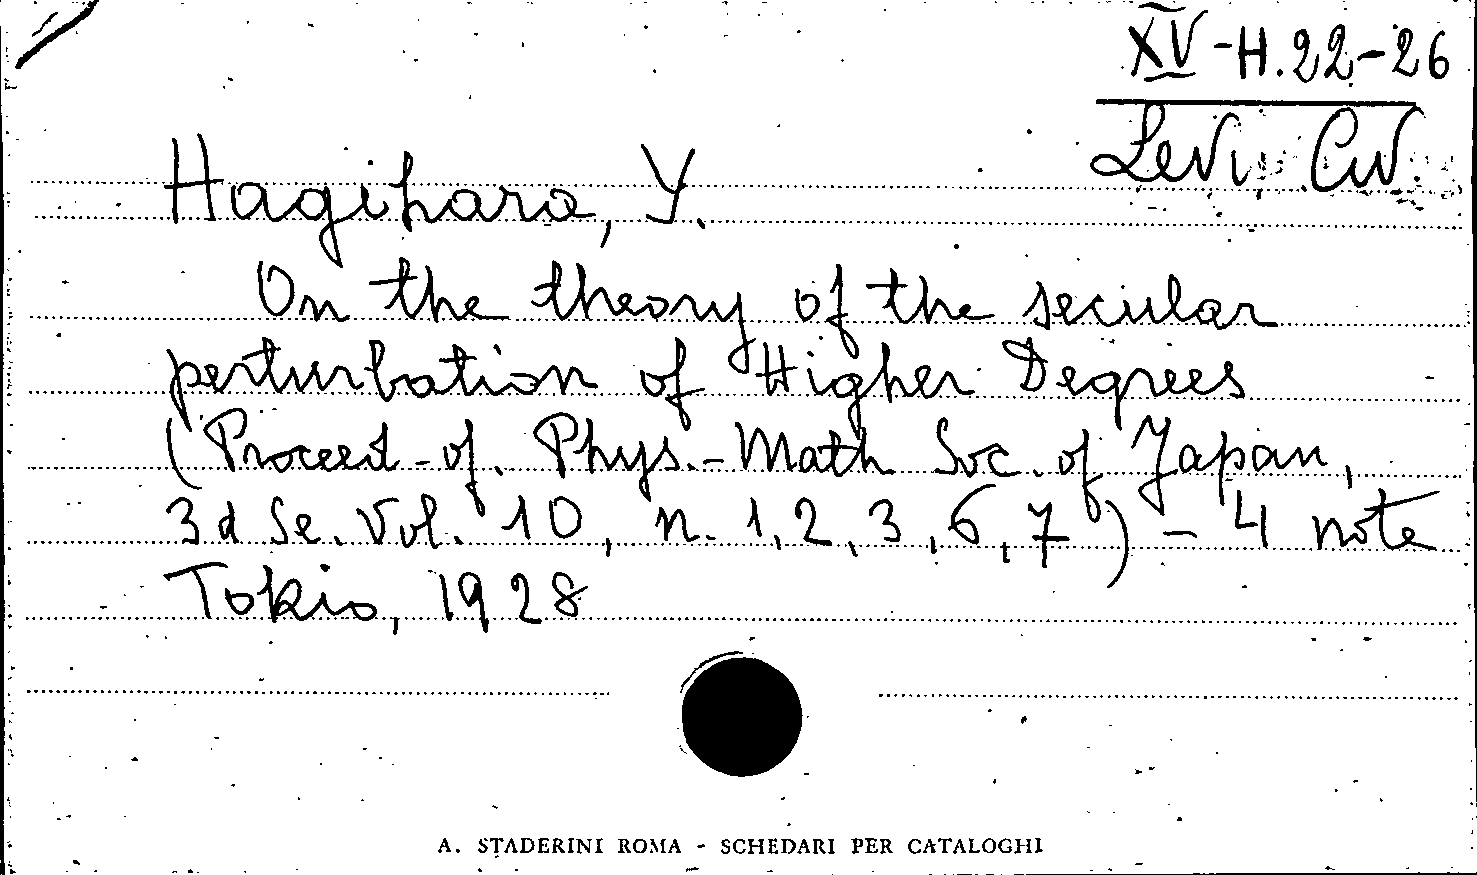 XV-H.22-26
Levi Civ.
Hagihara, Y.
On the theory of the secular
perturbation of Higher Degrees
(Proceed. of. Phys.-Math Soc. of Japan,
3d Se. Vol. 10, n. 1, 2, 3, 6, 7) - 4 note
Tokio, 1928
A. STADERINI ROMA - SCHEDARI PER CATALOGHI